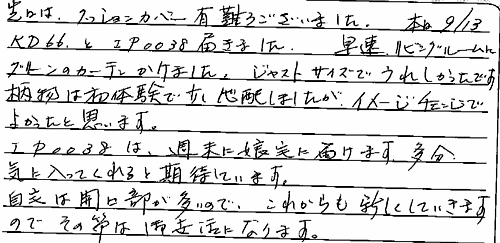 先日は、クッションカバー有難うございました。 本日 9/13
KD66. と IP0038 届きました。 早速 リビングルームに
グリーンのカーテンかけました。ジャストサイズでうれしかったです
柄物は初体験で少し心配しましたが、イメージチェンジで
よかったと思います。
IP0038は、週末に娘宅に届けます。多分
気に入ってくれると期待しています。
自宅は開口部が多いので、これからも新しくしていきます
ので その節は お世話になります。